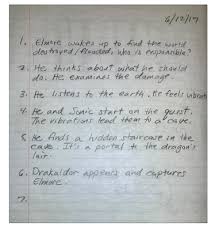 6/12/17
1. Elmore wakes up to find the world
destroyed/flooded; who is responsible?
2. He thinks about what he should
do. He examines the damage.
3. He listens to the earth. He feels vibrati
4. He and Sonic start on the quest.
The vibrations lead them to a cave.
5. He finds a hidden staircase in the
cave. It's a portal to the dragon's
lair.
6. Drakaidor appears and captures
Elmore.
7.